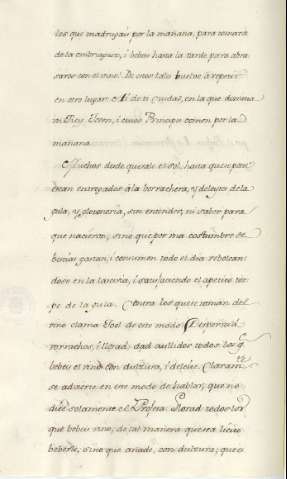 los que madrugan por la mañana, para tomarse
de la embriaguez, i beben hasta la tarde para abra
sarse con el vino. De otros tales buelve à repetir
en otro lugar. Ai de ti Ciudad, en la que domina
tu Rey Joven, i cuios Principes comen por la
mañana
Muchos desde que sale el sol, hasta que se pone
estan entregados à la borrachera, y deleytes de la
gula, y glotoneria, sin entender, ni saber para
que nacieron, sino que por ma costumbre se
bestias gastan, i consumen todo el dia rebolcan
dose en la luxuria, i satisfaciendo el apetito tor
pe de la gula. Contra los que se toman del
vino clama Joel de este modo Despertad
borrachos, i llorad, dad aullidos todos los q.
bebeis el vino con dulzura, i deleite. Claramte
se advierte en este modo de hablar, que no
dice solamente el Profeta Llorad todos los
que bebeis vino, de tal manera que sea licito
beberle, sino que añade, con dulzura, que es